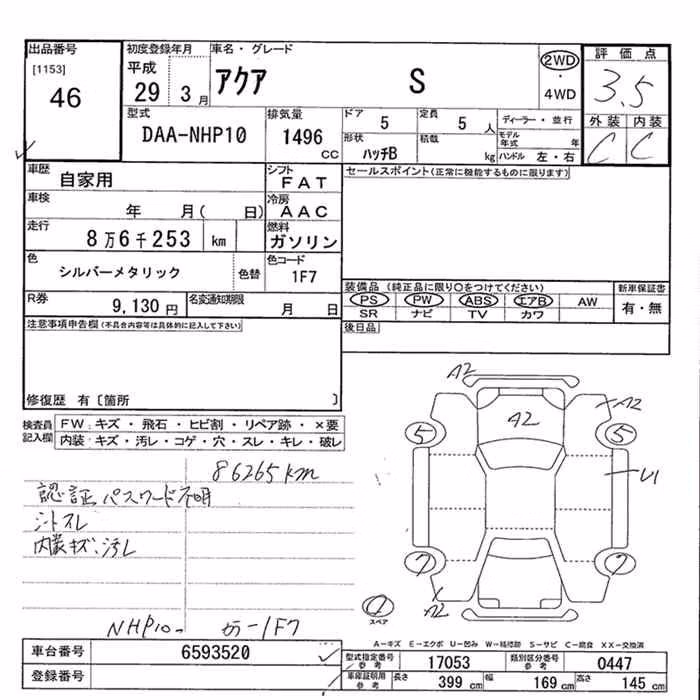 出品番号
[1153]
46
初度登録年月
平成
29 3 月
車名・グレード
アクア S
2WD
・
4WD
評価点
3.5
外装 内装
C C
型式
DAA-NHP10
排気量
1496
CC
ドア
5
定員
5 人
形状
ハッチB
積載
kg
ディーラー・並行
モデル年式 年
ハンドル 左・右
車歴
自家用
シフト
FAT
セールスポイント(正常に機能するものに限ります)
車検
年 月( 日)
冷房
AAC
走行
8万6千253 km
燃料
ガソリン
色
シルバーメタリック
色替
色コード
1F7
装備品 (純正品に限り〇をつけてください)
新車保証書
PS PW ABS エアB AW
有・無
SR ナビ TV カワ
R券
9,130 円
名変通知期限
月 日
後日品
注意事項申告欄(不具合内容等は具体的に記入して下さい)
修復歴 有〔箇所 〕
検査員
記入欄
FW:キズ・飛石・ヒビ割・リペア跡・×要
内装:キズ・汚レ・コゲ・穴・スレ・キレ・破レ
86265km
認証パスワード不明
シートスレ
内装キズ、汚レ
A2
A2
A2
5 5
U1
7 7
A2
スペア
NHP10- カラー1F7
A-キズ E-エクボ U-凹み W-補修跡 S-サビ C-腐食 XX-交換済
車台番号
6593520
登録番号
型式指定番号
参考
17053
類別区分番号
参考
0447
車庫証明用
参考
長さ
399 cm
幅
169 cm
高さ
145 cm